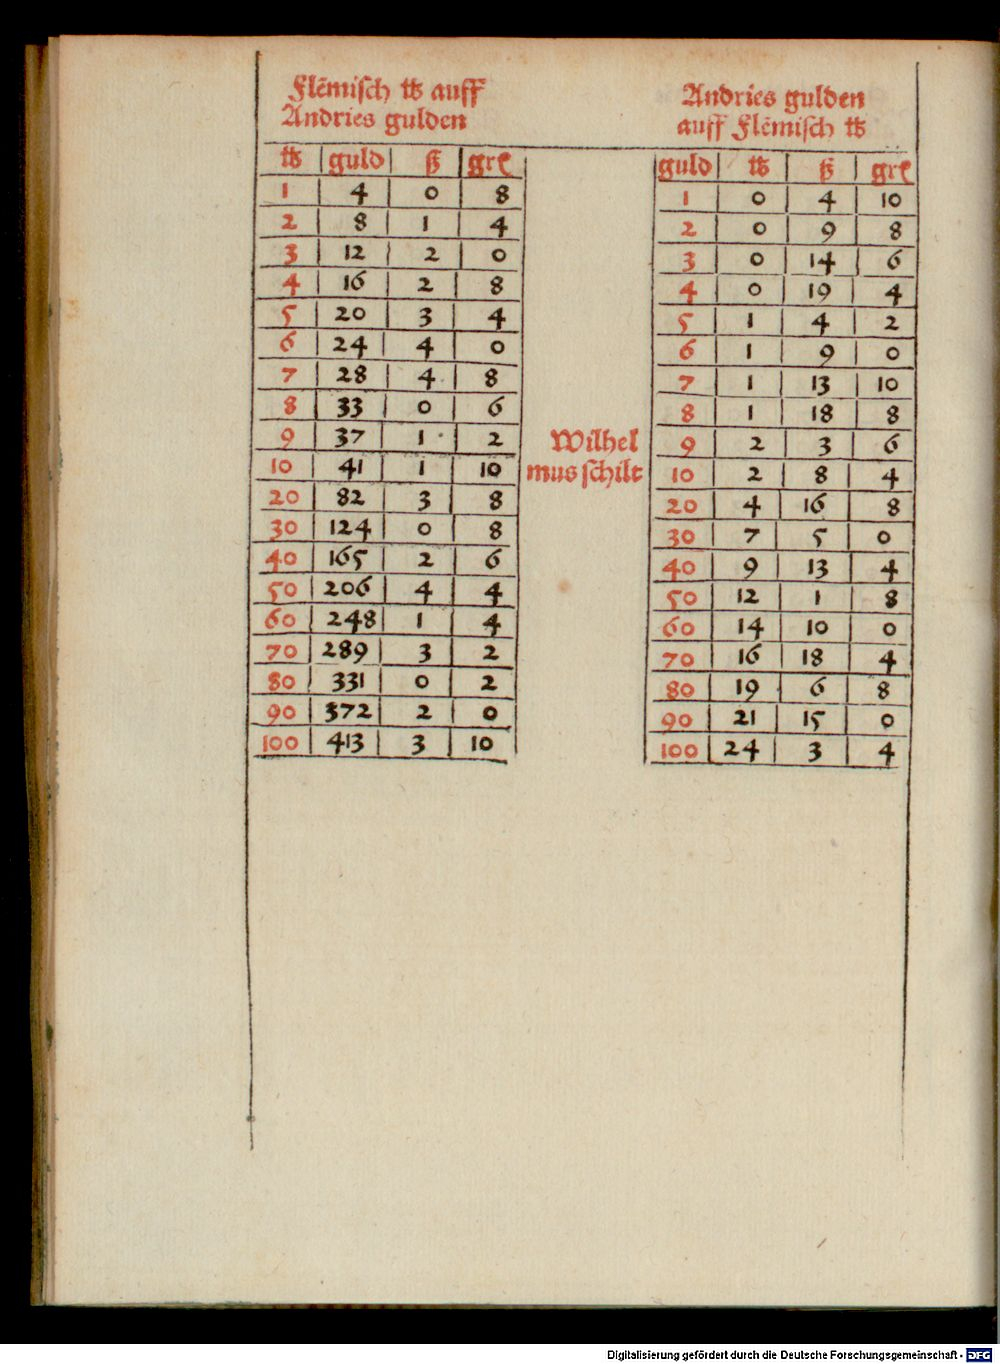 Flēmisch ℔ auff
Andries gulden
℔ guld ß gre
1 4 0 8
2 8 1 4
3 12 2 0
4 16 2 8
5 20 3 4
6 24 4 0
7 28 4 8
8 33 0 6
9 37 1 2
10 41 1 10
20 82 3 8
30 124 0 8
40 165 2 6
50 206 4 4
60 248 1 4
70 289 3 2
80 331 0 2
90 372 2 0
100 413 3 10
Wilhel
mus schilt
Andries gulden
auff Flēmisch ℔
guld ℔ ß gre
1 0 4 10
2 0 9 8
3 0 14 6
4 0 19 4
5 1 4 2
6 1 9 0
7 1 13 10
8 1 18 8
9 2 3 6
10 2 8 4
20 4 16 8
30 7 5 0
40 9 13 4
50 12 1 8
60 14 10 0
70 16 18 4
80 19 6 8
90 21 15 0
100 24 3 4
Digitalisierung gefördert durch die Deutsche Forschungsgemeinschaft - DFG